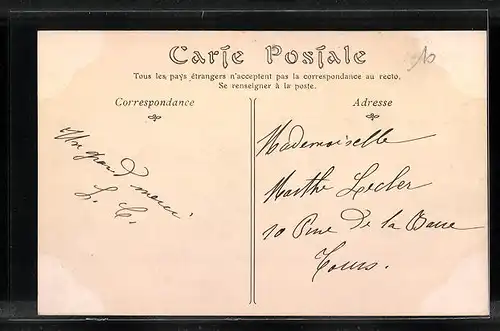 Carte Postale
Tous les pays étrangers n'acceptent pas la correspondance au recto.
Se renseigner à la poste.
Correspondance
Un grand merci.
L. C.
Adresse
Mademoiselle
Marthe Lecler
10 Rue De la Barre
Tours.